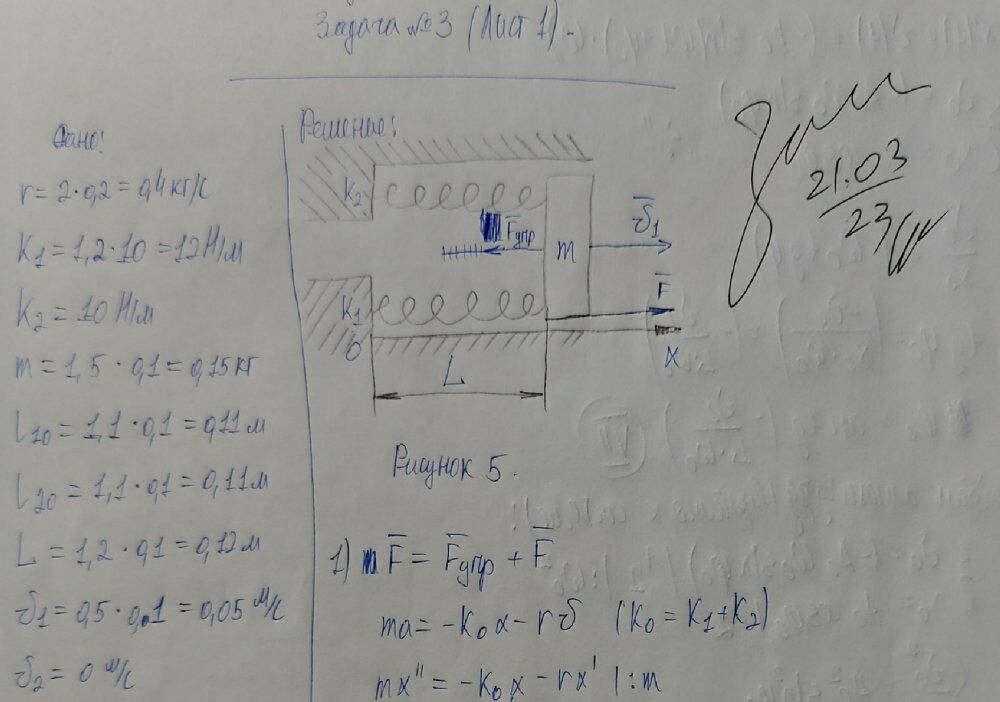 Задача №3 (Лист 1).
Дано:
r = 2·0,2 = 0,4 кг/с
K₁ = 1,2·10 = 12 Н/м
K₂ = 10 Н/м
m = 1,5 · 0,1 = 0,15 кг
l₁₀ = 1,1 · 0,1 = 0,11 м
l₂₀ = 1,1 · 0,1 = 0,11 м
L = 1,2 · 0,1 = 0,12 м
υ₁ = 0,5 · 0,1 = 0,05 м/с
υ₂ = 0 м/с
Решение:
K₂
F̅упр
m
υ̅₁
K₁
F̅
0
x
L
Рисунок 5.
1) F̅ = F̅упр + F̅
ma = -K₀x - rυ (K₀ = K₁+K₂)
mx'' = -K₀x - rx' |:m
21.03
23